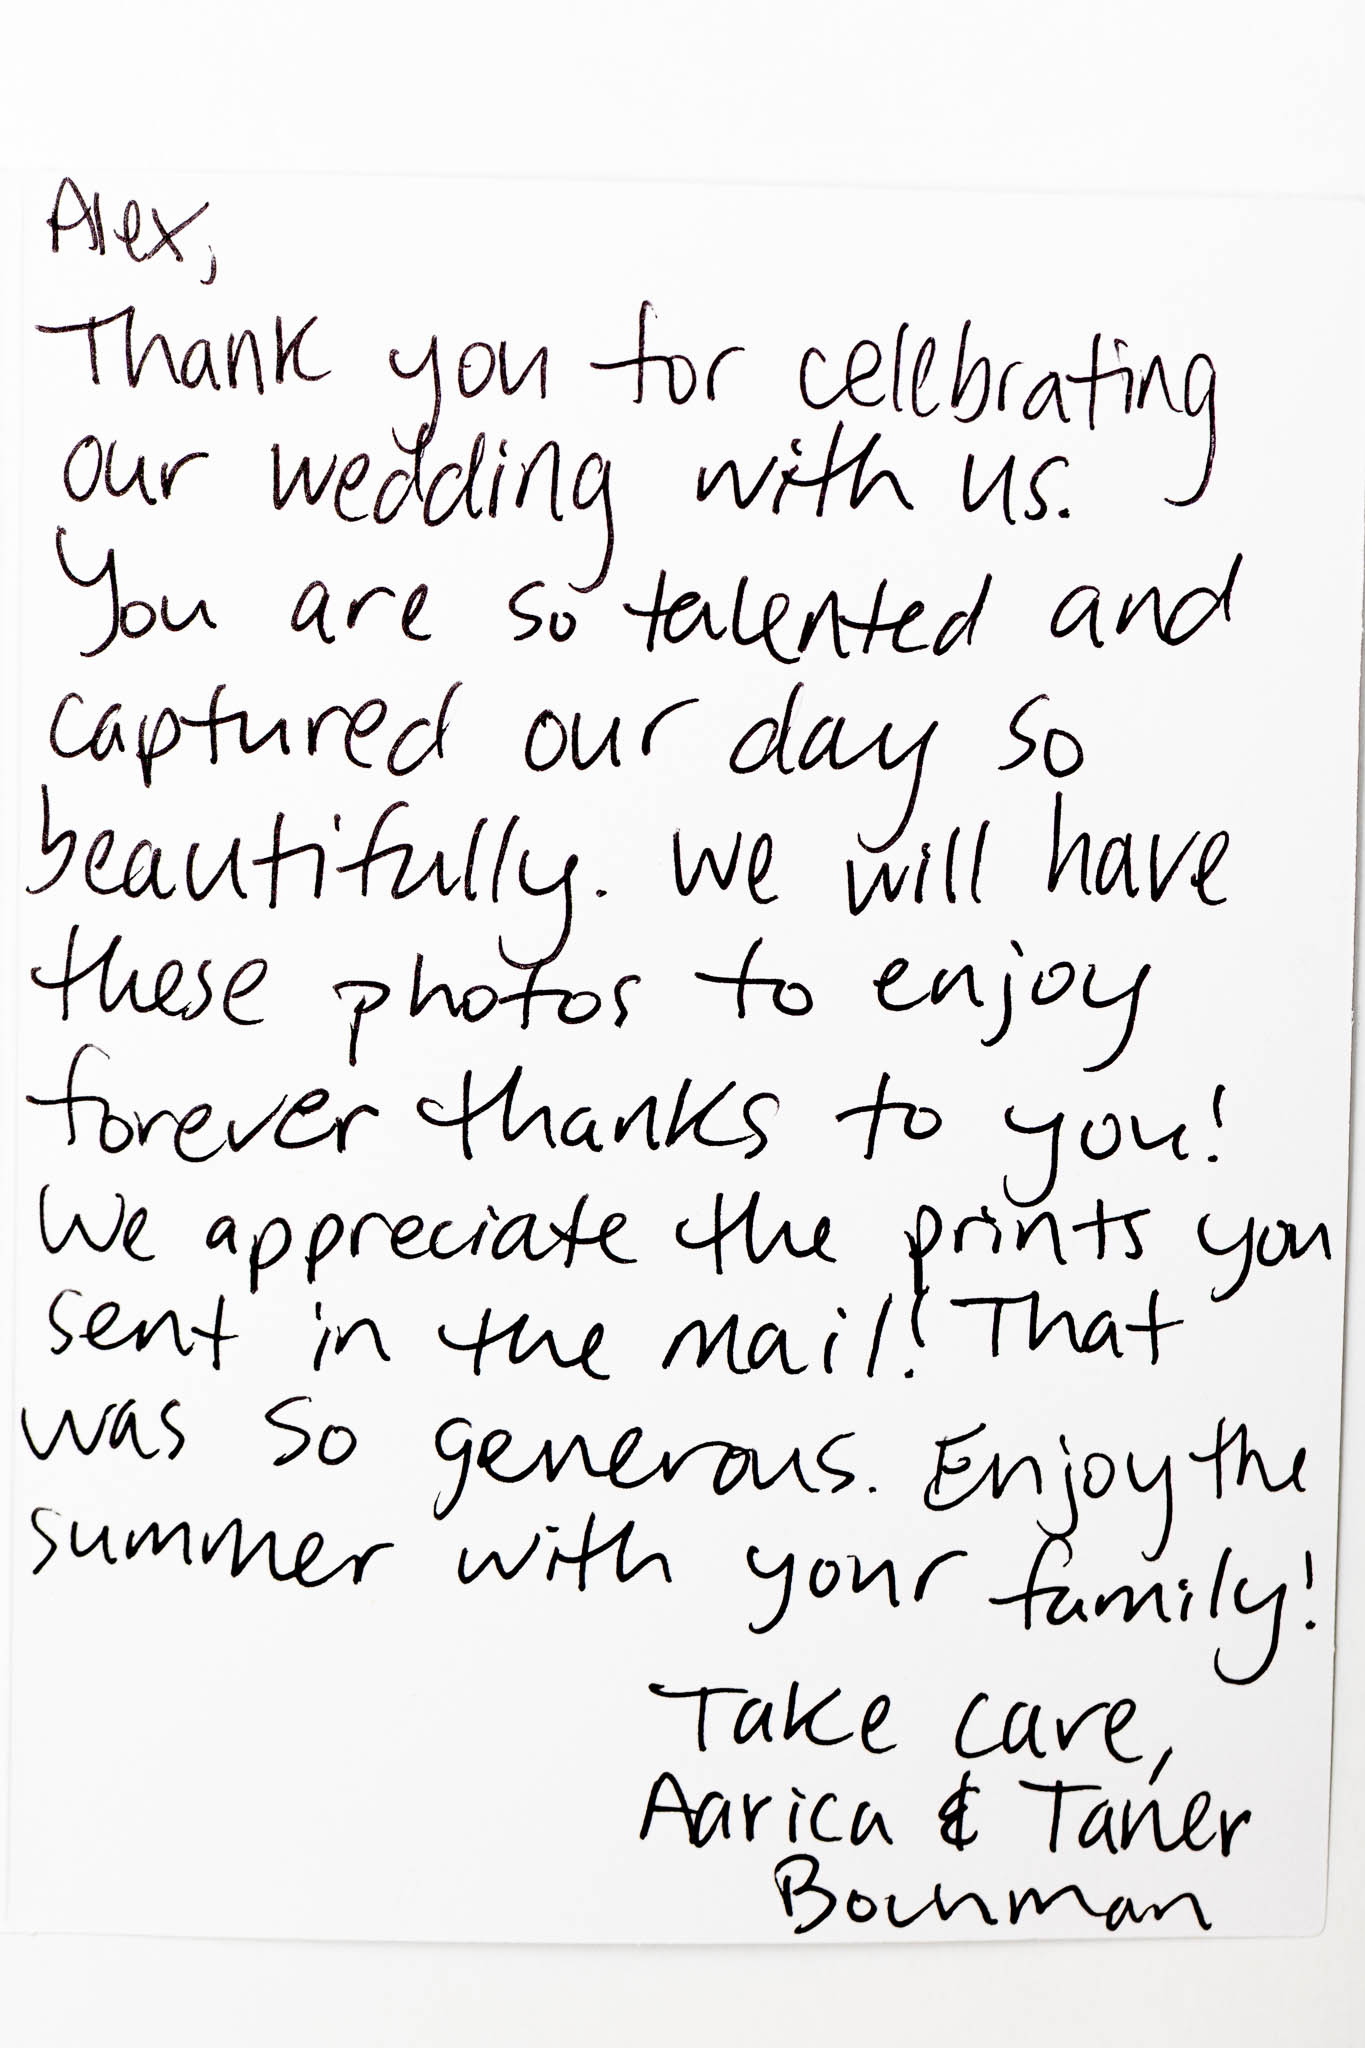 Alex,
Thank you for celebrating
our wedding with us.
You are so talented and
captured our day so
beautifully. We will have
these photos to enjoy
forever thanks to you!
We appreciate the prints you
sent in the mail! That
was so generous. Enjoy the
summer with your family!
Take care,
Aarica & Taner